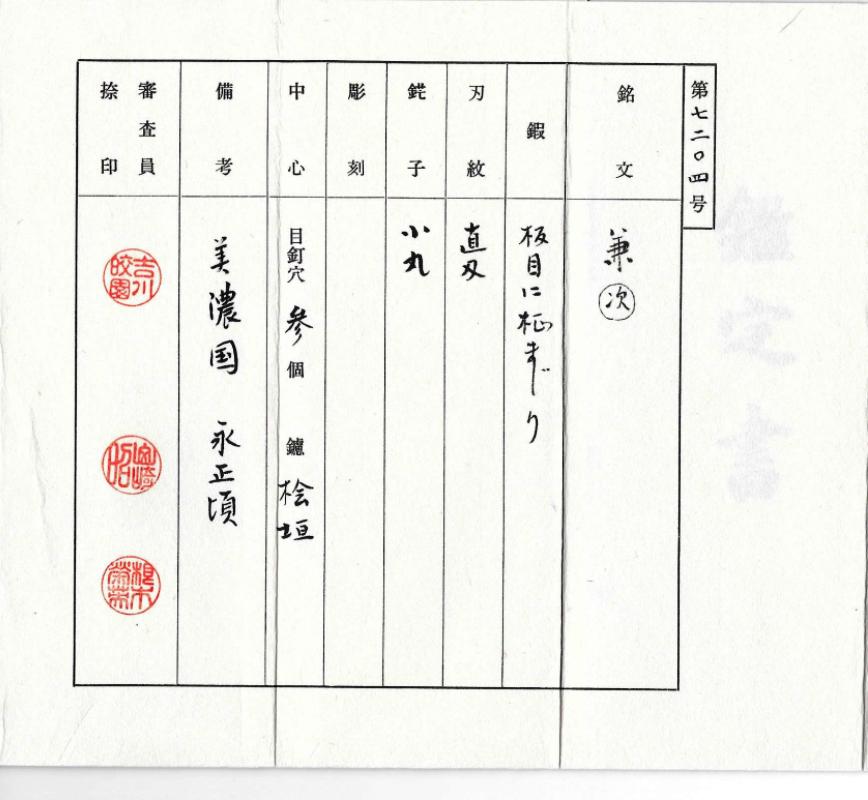 鑑定書
第七二〇四号
銘文
兼次
鍜
板目に柾まじり
刃紋
直刃
鋩子
小丸
彫刻
中心
目釘穴 参個 鑢 桧垣
備考
美濃国 永正頃
審査員
捺印
吉川皎園
宮崎昭
根本栄